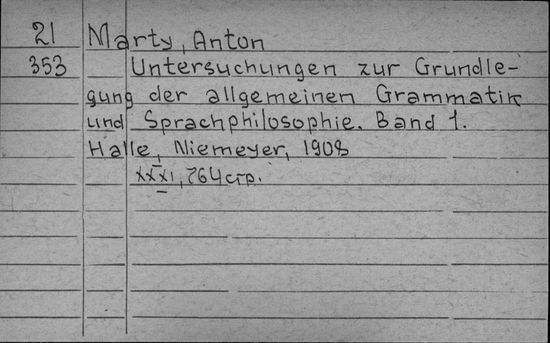 21 Marty, Anton
353 Untersuchungen zur Grundle-
gung der allgemeinen Grammatik
und Sprachphilosophie. Band 1.
Halle, Niemeyer, 1908
XXXI, 764 стр.